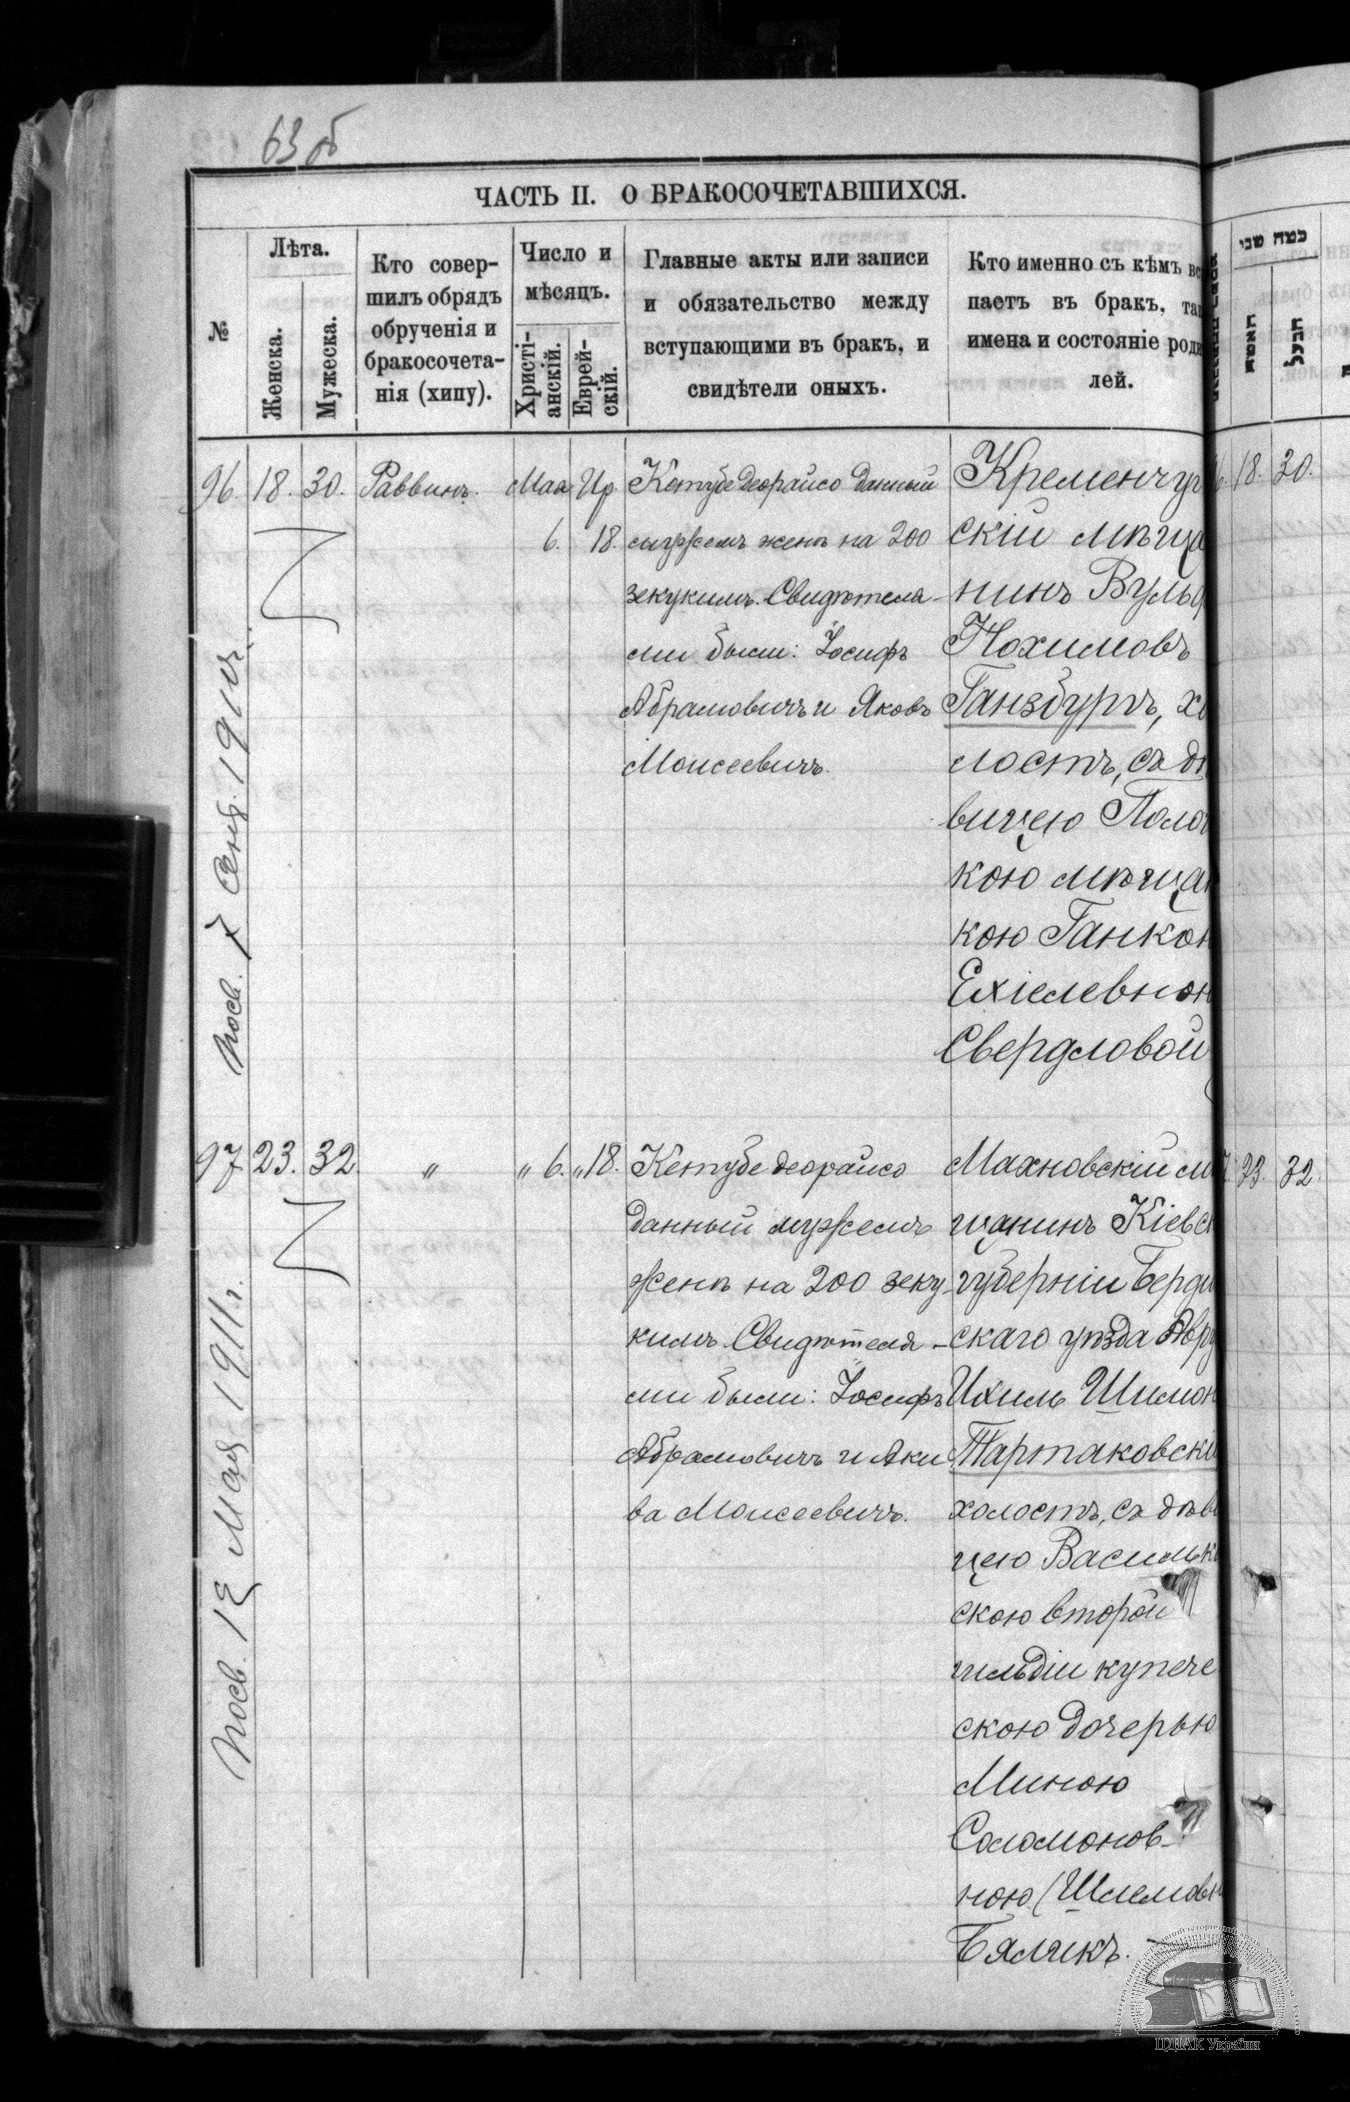 63 об
ЧАСТЬ II. О БРАКОСОЧЕТАВШИХСЯ.
№
Лѣта.
Женска.
Мужеска.
Кто совер-
шилъ обрядъ
обрученія и
бракосочета-
нія (хипу).
Число и
мѣсяцъ.
Христі-
анскій.
Еврей-
скій.
Главные акты или записи
и обязательство между
вступающими въ бракъ, и
свидѣтели оныхъ.
Кто именно съ кѣмъ вс
паетъ въ бракъ, так
имена и состояніе роди
лей.
96. 18. 30. Раввинъ. Мая 6. Ир. 18.
Кетубе деорайсо данный
мужемъ женѣ на 200
зекукимъ. Свидѣтеля-
ми были: Іосифъ
Абрамовичъ и Яковъ
Моисеевичъ.
Кременчуг
скій мѣща
нинъ Вульф
Нохимовъ
Ганзбургъ, хо
лостъ, съ дѣ
вицею Полоц
кою мѣщан
кою Ганкою
Ехіелевною
Свердловой
7 Сент. 1910 г.
97 23. 32 " " 6. " 18.
Кетубе деорайсо
данный мужемъ
женѣ на 200 зеку-
кимъ. Свидѣтеля-
ми были: Іосифъ
Абрамовичъ и Аки
ва Моисеевичъ.
Махновскій мѣ
щанинъ Кіевск
губерніи Берди
скаго уѣзда Авру
Ихиль Шимон
Тартаковскі
холостъ, съ дѣви
цею Васильк
скою второй
гильдіи купече
скою дочерью
Миною
Соломонов-
ною (Шлемовн
Бяликъ.
Мая 1911 г.
כמה שני
האשה
הבעל
18. 30.
23. 32.
ЦДІАК України